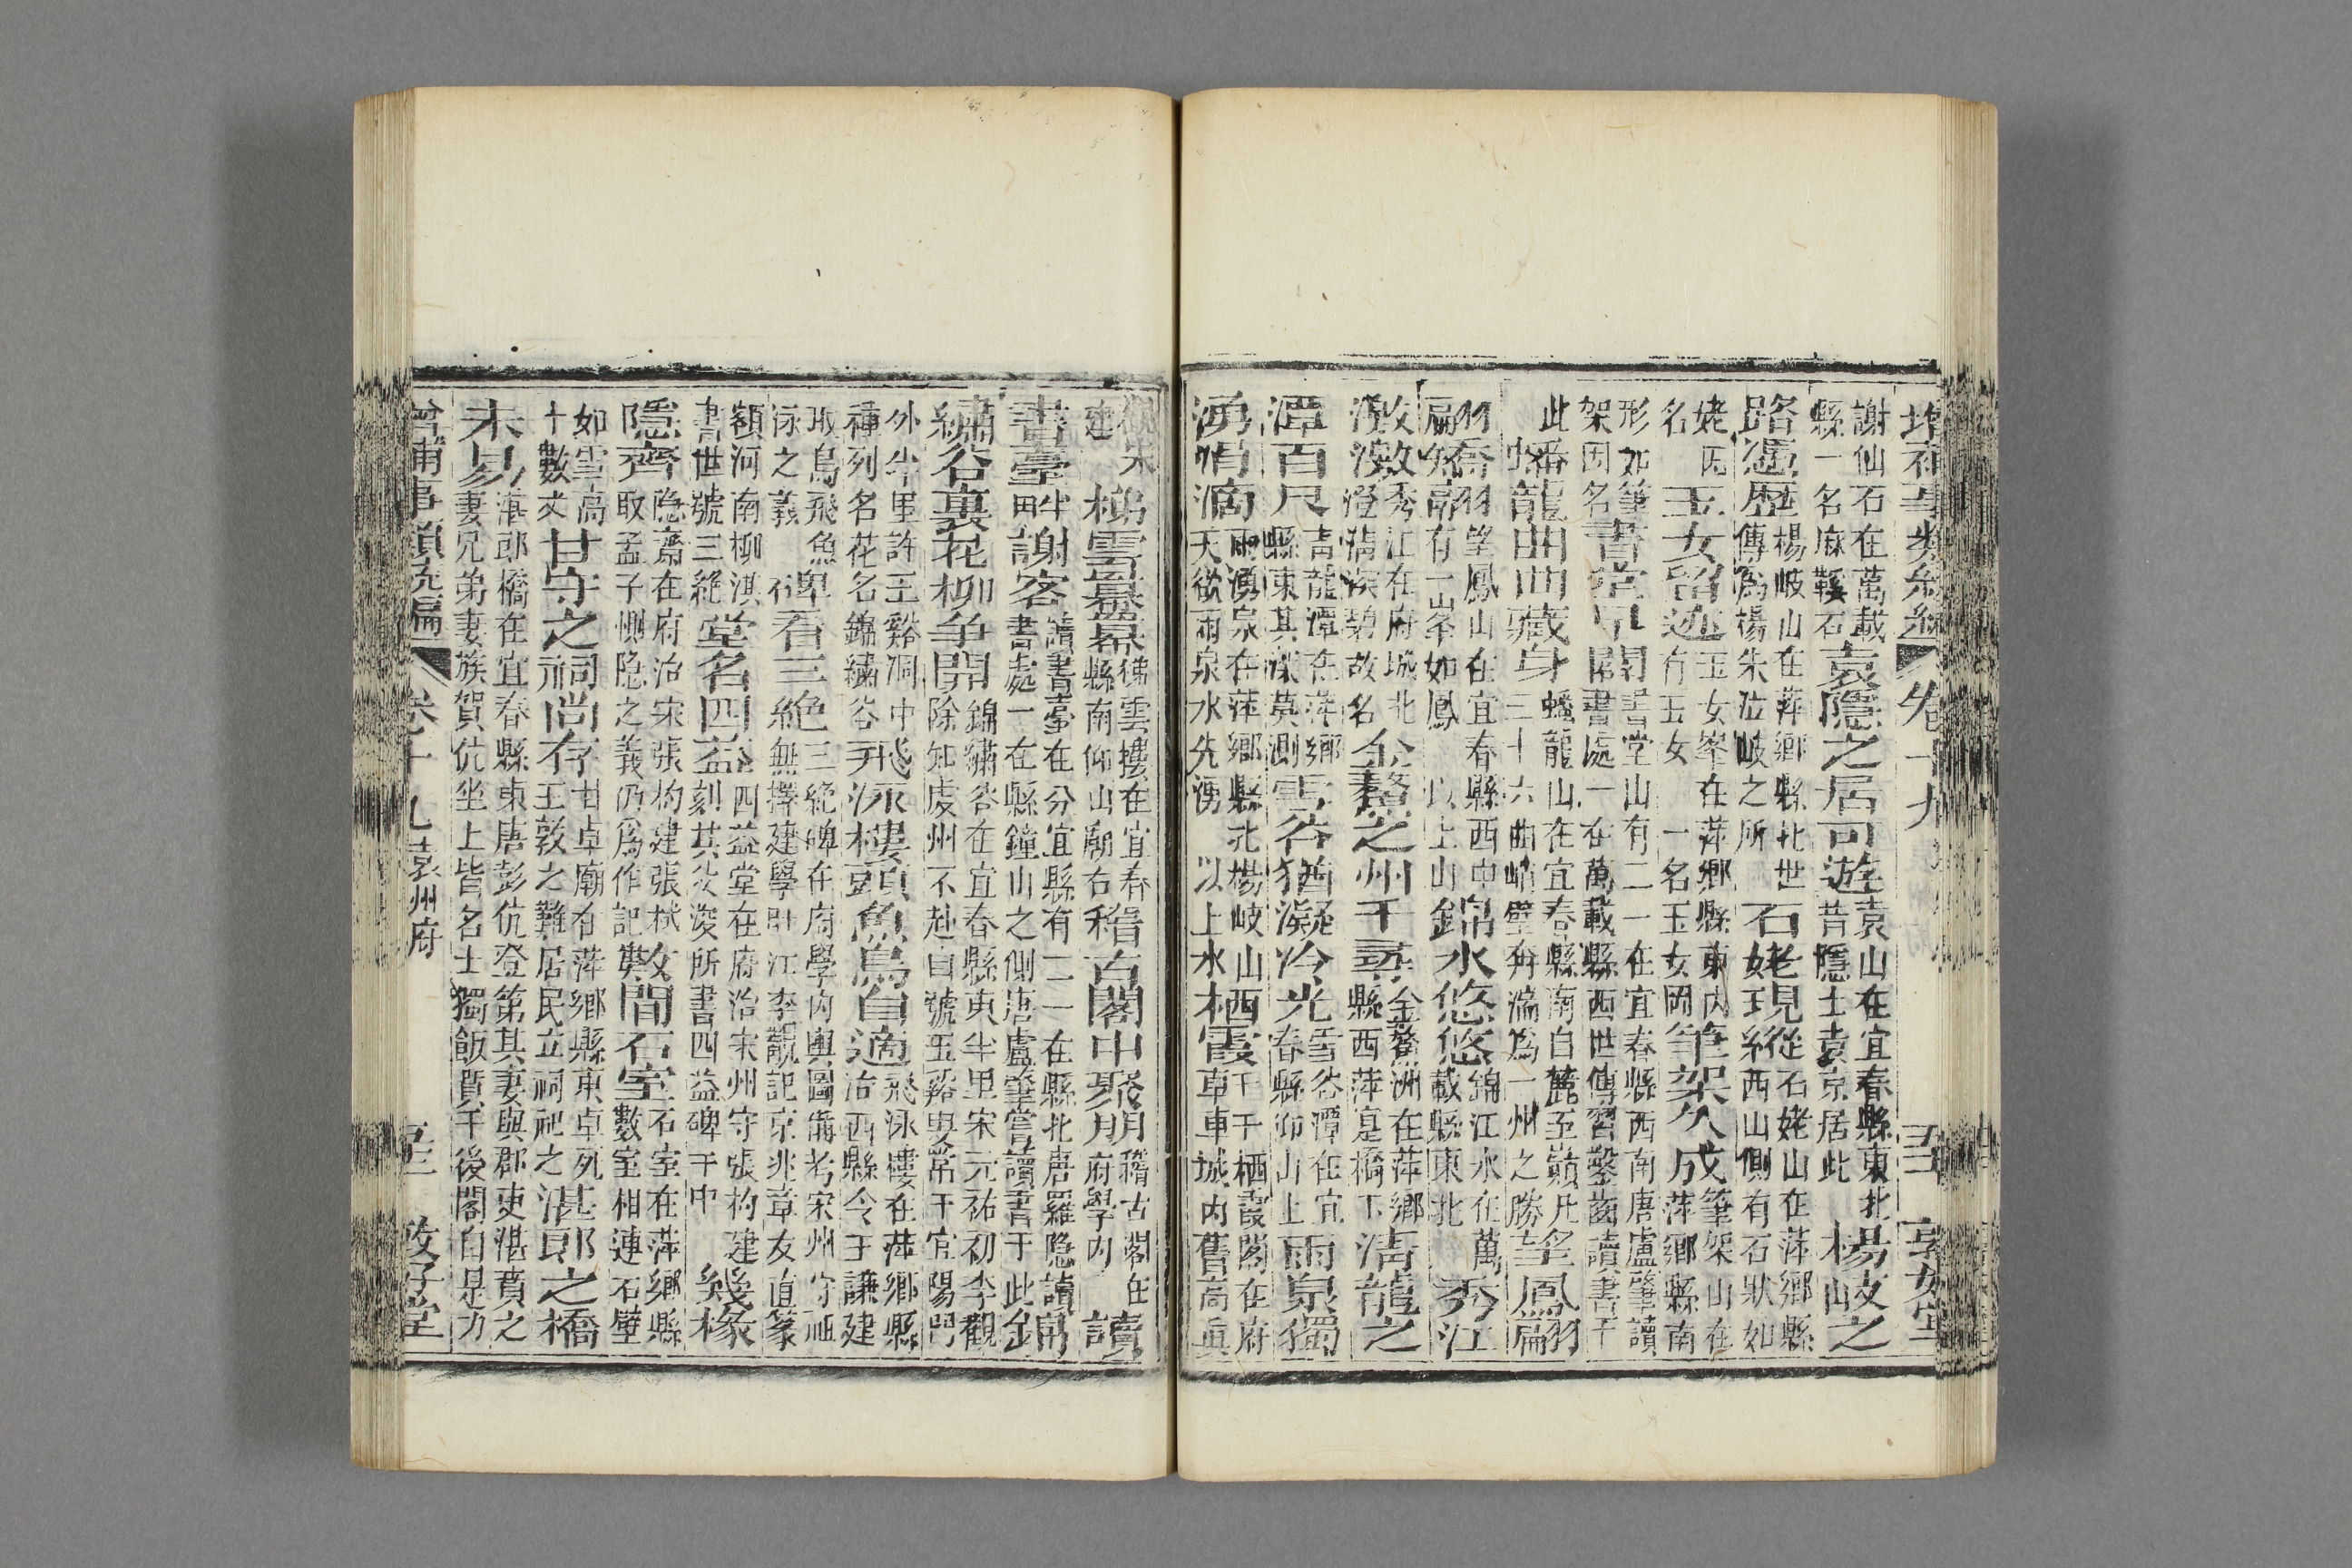 增補事類統編 卷十九
謝仙石在萬載縣一名麻鞋石袁隱之居可遊袁山在宜春縣東北昔隱士袁京居此楊岐之
路遥歷楊岐山在萍鄉縣北世傳爲楊朱泣岐之所石姥現縱石姥山在萍鄉縣西山側有石狀如
姥因名玉女留迹玉女峯在萍鄉縣東内有玉女一名玉女岡筆架久成筆架山在萍鄉縣南
形如筆架因名書堂早開書堂山有二一在宜春縣西南唐盧肇讀書處一在萬載縣西世傳習鑿齒讀書于
此蟠龍曲曲藏身蟠龍山在宜春縣南自麓至巔凡三十六曲峭壁奔湍爲一州之勝望鳳翩
翩矯翮望鳳山在宜春縣西中有一峯如鳳 以上山錦水悠悠錦江水在萬載縣東北秀江
激激秀江在府城北澄清深碧故名金鰲之州千尋金鰲洲在萍鄉縣西萍寔橋下清龍之
潭百尺青龍潭在萍鄉縣東其深莫測雪谷猶凝冷光雪谷潭在宜春縣仰山上雨泉獨
湧涓滴雨湧泉在萍鄉縣北楊岐山天欲雨泉水先湧 以上水栖霞軒軒栖霞閣在府城内舊高眞
觀宋建梯雲梯雲樓在宜春縣南仰山廟右稽古閣中聚朋稽古閣在府學内讀
書臺畔謝客讀書臺在分宜縣有二一在縣北唐羅隱讀書處一在縣鐘山之側唐盧肇嘗讀書于此錦
繡谷裏花柳爭開錦繡谷在宜春縣東半里宋元祐初李觀除知虔州不赴自號玉谿叟常于宜陽門
外半里許玉谿洞中種列名花名錦繡谷飛泳樓頭魚鳥自適飛泳樓在萍鄉縣治西縣令王謙建
取鳥飛魚泳之義碑看三絶三絶碑在府學内輿圖備考宋州守祖無擇建學旴江李覯記京兆章友直篆
額河南柳淇書世號三絶堂名四益四益堂在府治宋州守張杓建刻其父浚所書四益碑于中幾椽
隱齊隱齋在府治宋張杓建張栻取孟子惻隱之義仍爲作記數間石室石室在萍鄉縣數室相連石壁
如雪高十數丈甘守之祠尚存甘卓廟在萍鄉縣東卓死王敦之難居民立祠祀之湛郎之橋
未易湛郎橋在宜春縣東唐彭伉登第其妻與郡吏湛賁之妻兄弟妻族賀伉坐上皆名士獨飯賁于後閣自是力
增補事類統編 卷十九 袁州府 五三 敦好堂